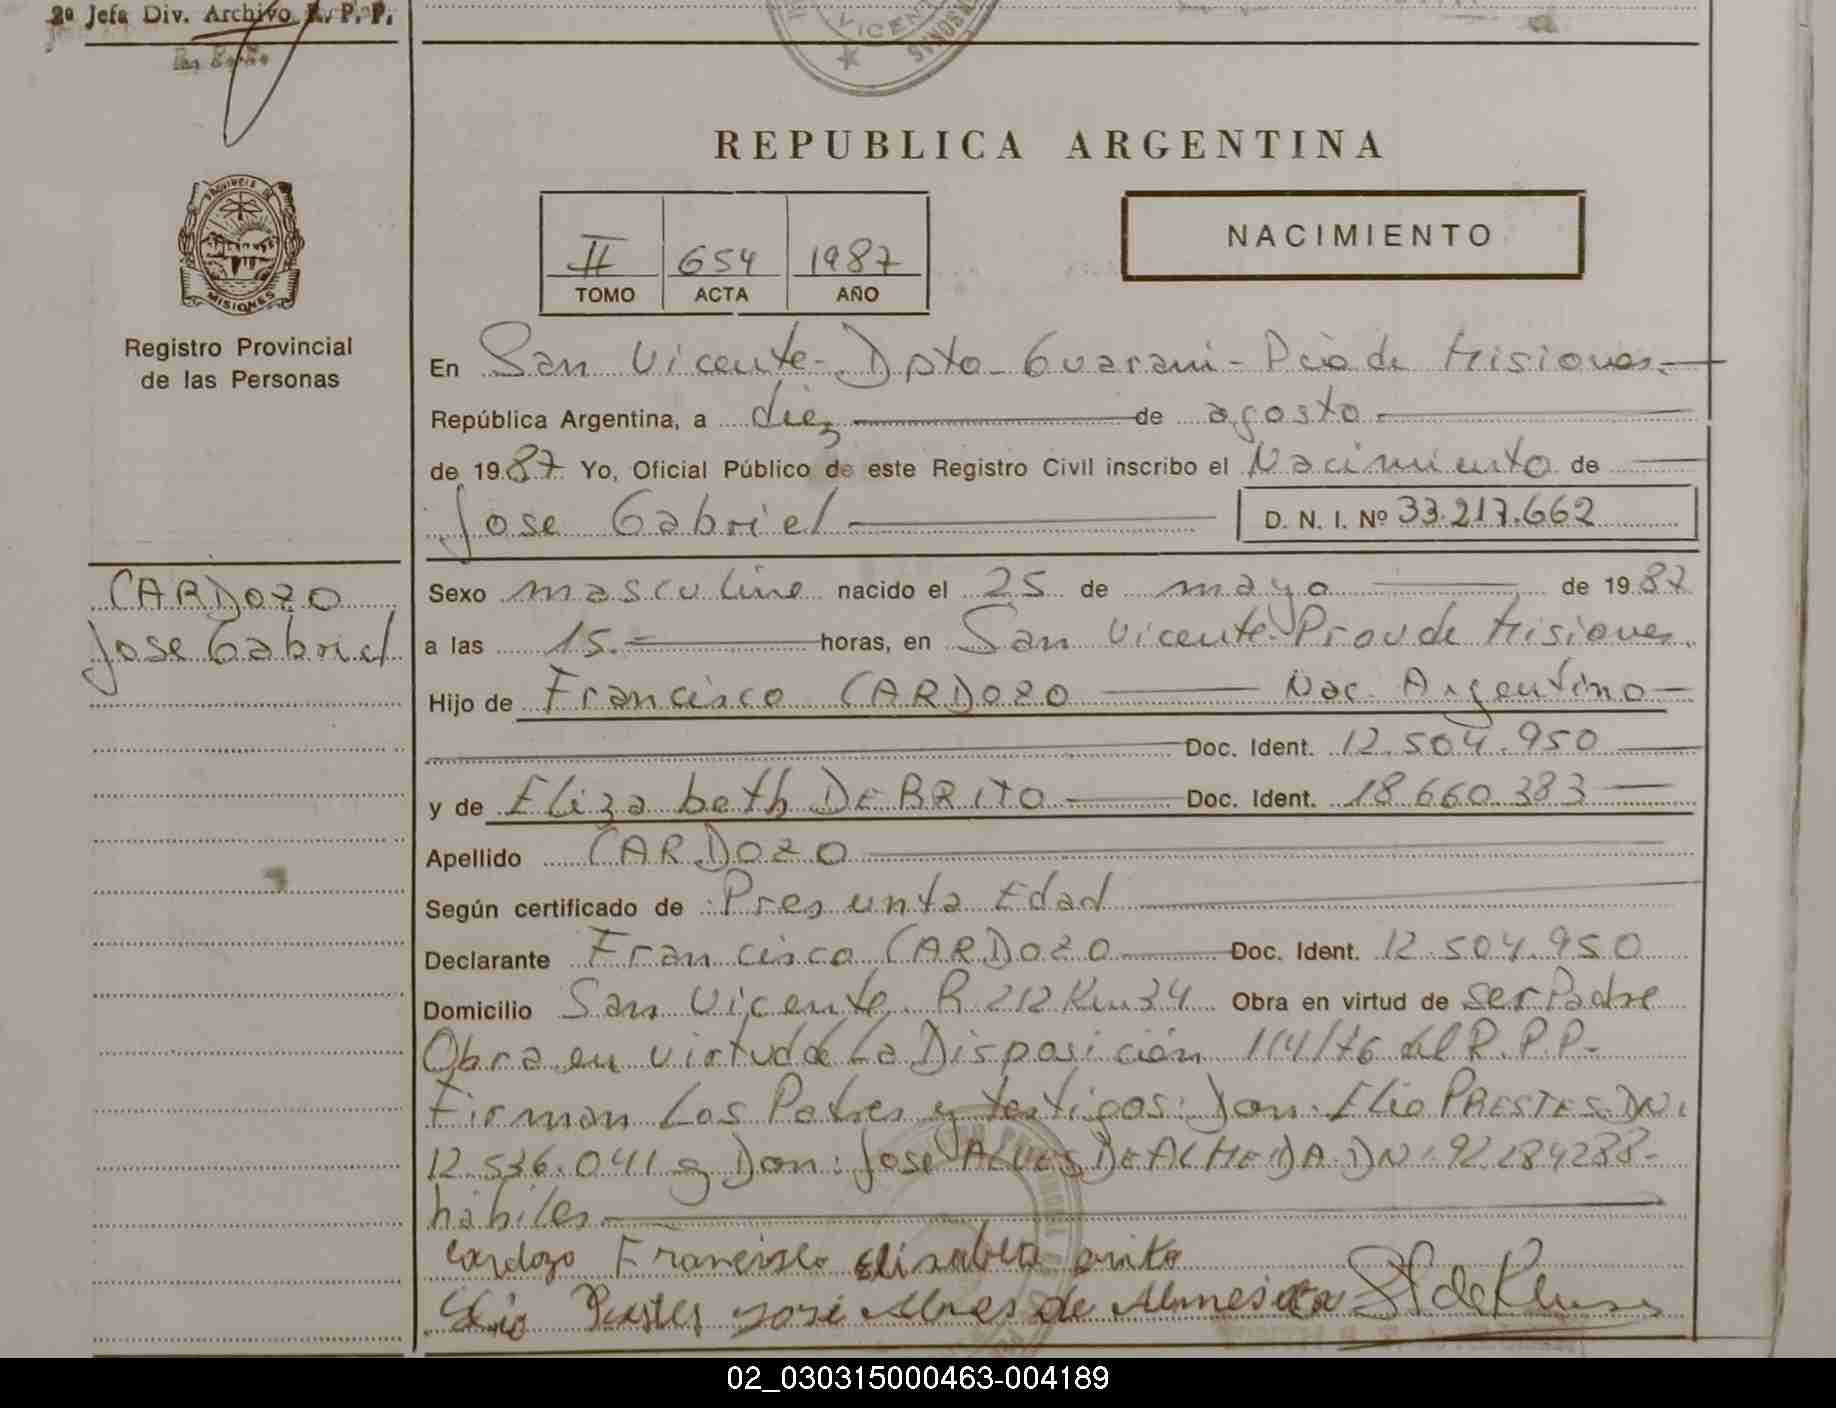 2ª Jefa Div. Archivo R. P. P.
VICENT
REPUBLICA ARGENTINA
NACIMIENTO
II 654 1987
TOMO ACTA AÑO
PROVINCIA DE
MISIONES
Registro Provincial
de las Personas
En San Vicente - Dpto - Guarani - Pcia de Misiones.-
República Argentina, a diez de agosto.
de 1987 Yo, Oficial Público de este Registro Civil inscribo el Nacimiento de
Jose Gabriel D. N. I. Nº 33.217.662
CARDOZO
Jose Gabriel
Sexo masculino nacido el 25 de mayo de 1987
a las 15.- horas, en San Vicente - Prov de Misiones.
Hijo de Francisco CARDOZO Nac. Argentino
Doc. Ident. 12.504.950
y de Elizabeth DE BRITO Doc. Ident. 18.660.383
Apellido CARDOZO
Según certificado de Presunta Edad
Declarante Francisco CARDOZO Doc. Ident. 12.504.950
Domicilio San Vicente. R. 212 Km 34 Obra en virtud de ser Padre
Obra en virtud de La Disposición 114/76 del R.P.P.-
Firman Los Padres y testigos: Don: Elio PRESTES. DNI
12.536.041 y Don: Jose ALVES DE ALMEIDA. DNI. 92.284288-
habiles.
Cardozo Francisco Elisabeta brito
Elio Prestes José Alves de
02_030315000463-004189